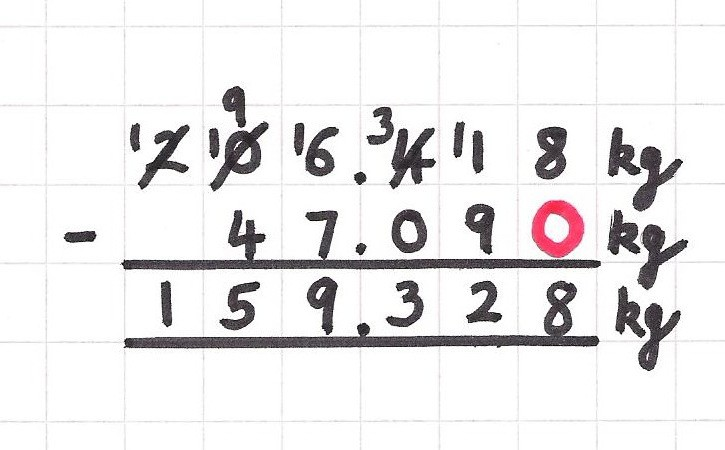 9
1 2 10 16.3 4 11 8 kg
- 47.090 kg
159.328 kg